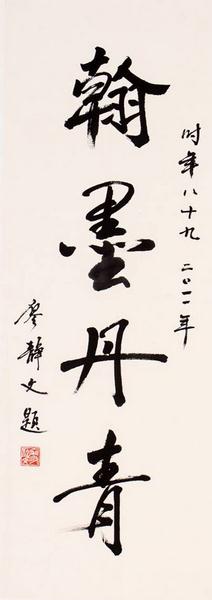 翰墨丹青
时年八十九 二〇一一年
廖静文题